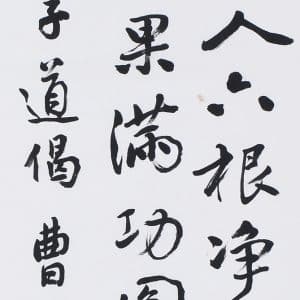 人六根净
果满功圆
子道偈 曹